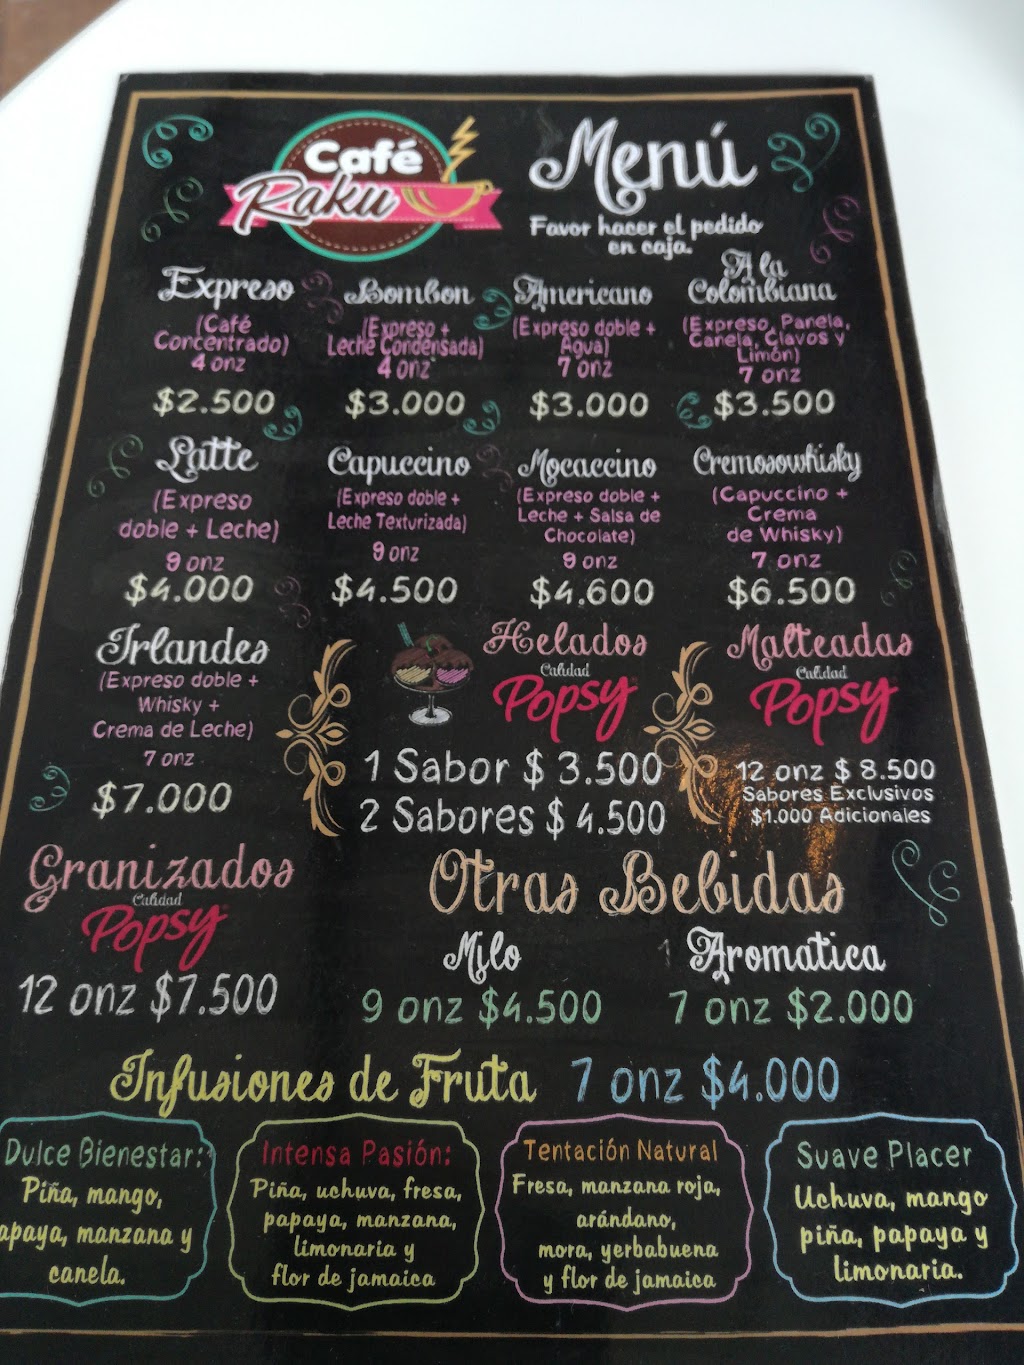 Café
Raku
Menú
Favor hacer el pedido
en caja.
Expreso
(Café
Concentrado)
4 onz
$2.500
Bombon
(Expreso +
Leche Condensada)
4 onz
$3.000
Americano
(Expreso doble +
Agua)
7 onz
$3.000
A la
Colombiana
(Expreso, Panela,
Canela, Clavos y
Limón)
7 onz
$3.500
Latte
(Expreso
doble + Leche)
9 onz
$4.000
Capuccino
(Expreso doble +
Leche Texturizada)
9 onz
$4.500
Mocaccino
(Expreso doble +
Leche + Salsa de
Chocolate)
9 onz
$4.600
Cremosowhisky
(Capuccino +
Crema
de Whisky)
7 onz
$6.500
Irlandes
(Expreso doble +
Whisky +
Crema de Leche)
7 onz
$7.000
Helados
Calidad
Popsy
1 Sabor $ 3.500
2 Sabores $ 4.500
Malteadas
Calidad
Popsy
12 onz $ 8.500
Sabores Exclusivos
$1.000 Adicionales
Granizados
Calidad
Popsy
12 onz $7.500
Otras Bebidas
Milo
9 onz $4.500
Aromatica
7 onz $2.000
Infusiones de Fruta 7 onz $4.000
Dulce Bienestar:
Piña, mango,
apaya, manzana y
canela.
Intensa Pasión:
Piña, uchuva, fresa,
papaya, manzana,
limonaria y
flor de jamaica
Tentación Natural
Fresa, manzana roja,
arándano,
mora, yerbabuena
y flor de jamaica
Suave Placer
Uchuva, mango
piña, papaya y
limonaria.